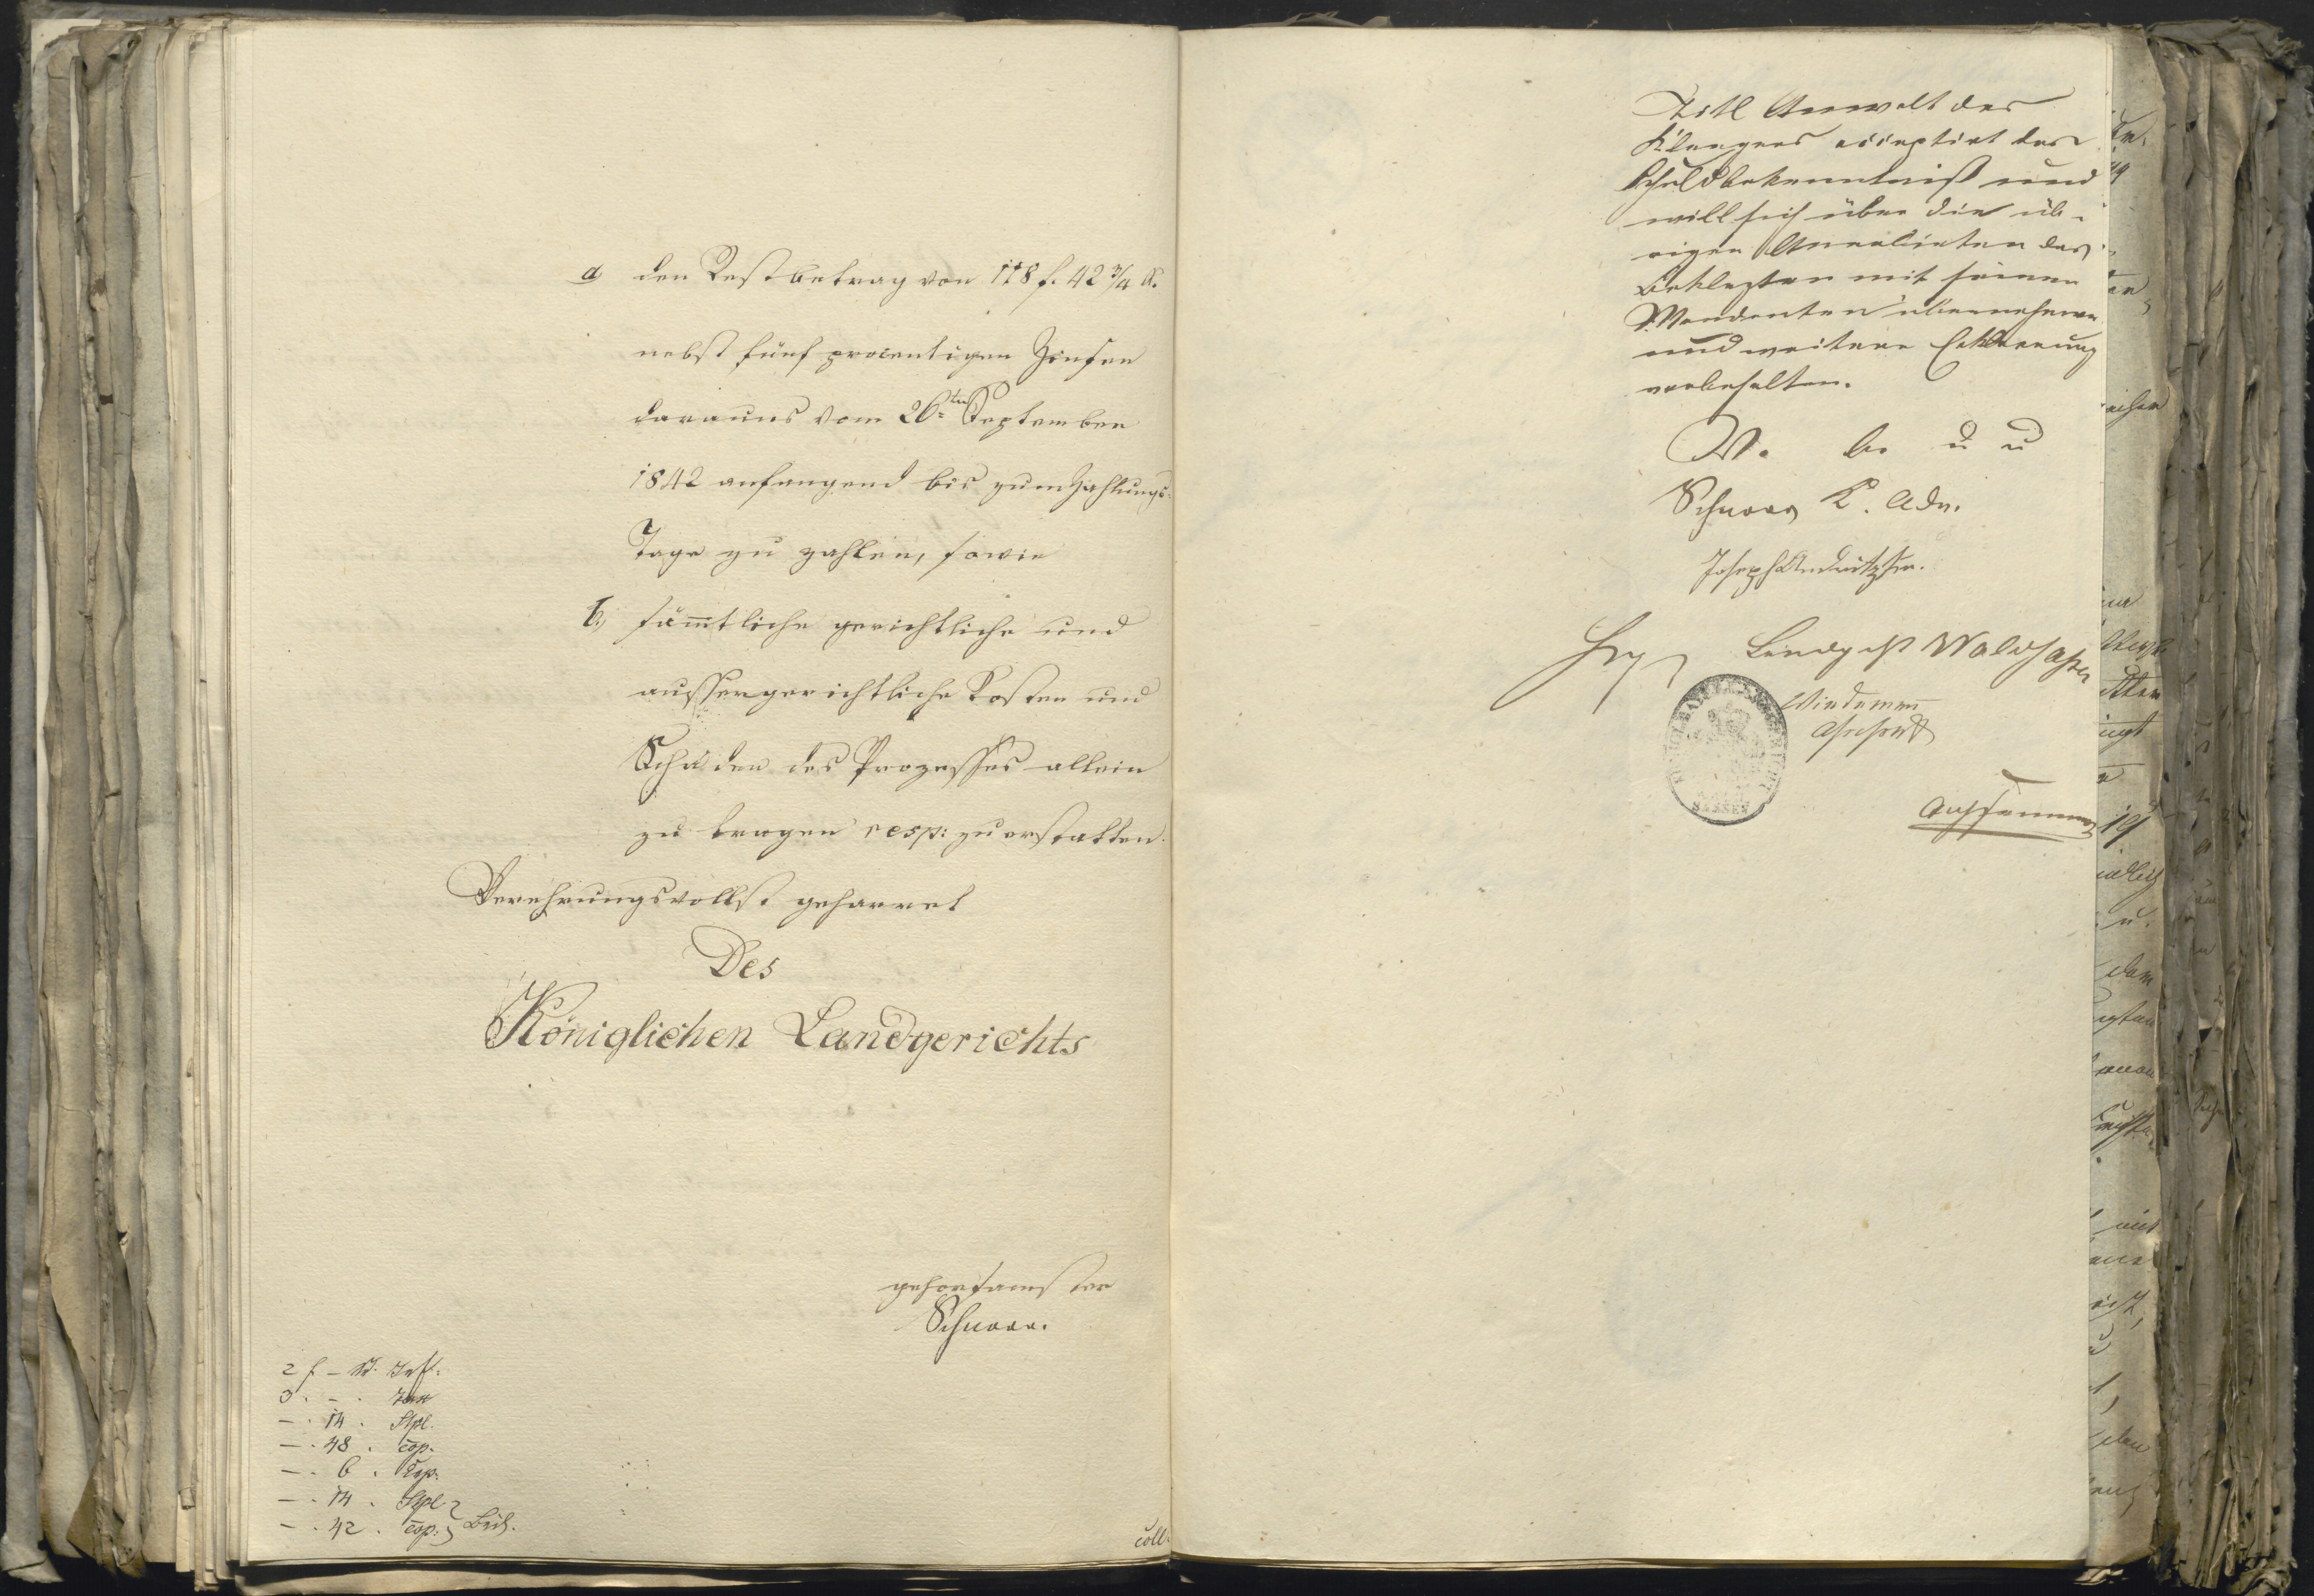 a den Restbetrag von 118 f. 42 3/4 x.
nebst fünf procentigen Zinsen
daraus vom 26ten September
1842 anfangend bis zum Zahlungs-
Tage zu zahlen, sowie
b, sämtliche gerichtliche und
aussergerichtliche Kosten und
Schäden des Prozesses allein
zu tragen resp: zu erstatten.
Verehrungsvollst geharret
Des
Königlichen Landgerichts
gehorsamster
Schnorr.
2 f - x.
- . 14 . Stpl.
- . 48 . cop.
- . 6 .
- . 14 . Stpl.
- . 42 . cop. Beil.
coll:
Titl Anwalt des
Klaegers acceptirt das
Schuldbekenntniß und
will sich über die üb-
rigen Anerbieten des
Beklagten mit seinem
Mandanten
und weitere Erklaerung
vorbehalten.
V. u u
Schnorr K. Adv.
Joseph
Landgcht Waldsassen